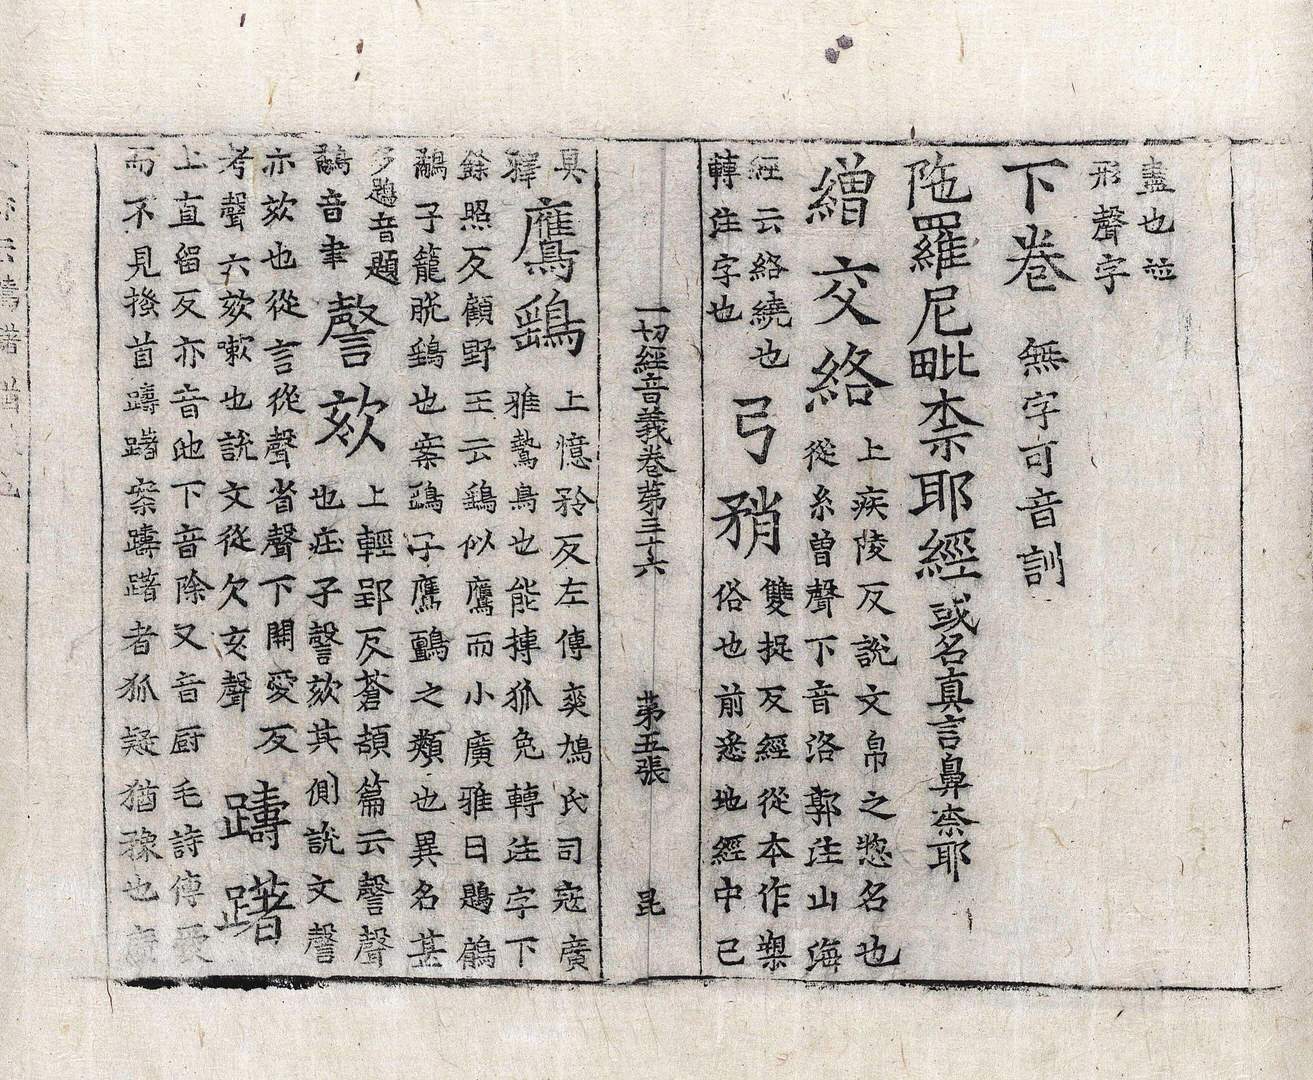 盡也並
形聲字
下卷 無字可音訓
陁羅尼毗柰耶經或名真言鼻柰耶
繒交絡 上疾陵反說文帛之惣名也
從糸曾聲下音洛郭注山海
經云絡繞也
轉注字也
弓矟 雙捉反經從本作槊
俗也前悉地經中已
一切經音義卷苐三十六 苐五張 昆
具
釋
鷹鷂 上憶矜反左傳爽鳩氏司寇廣
雅鷙鳥也能摶狐兔轉注字下
餘照反顧野王云鷂似鷹而小廣雅曰鶗鶮
鷸子籠脫鷂也案鷂子鷹鸇之類也異名甚
多鶗音題
鷸音聿
謦欬 上輕郢反蒼頡篇云謦聲
也庄子謦欬其側說文謦
亦欬也從言從聲省聲下開愛反
考聲云欬嗽也說文從欠亥聲
躊躇
上直留反亦音池下音除又音厨毛詩傳
而不見搔首躊躇案躊躇者狐疑猶豫也